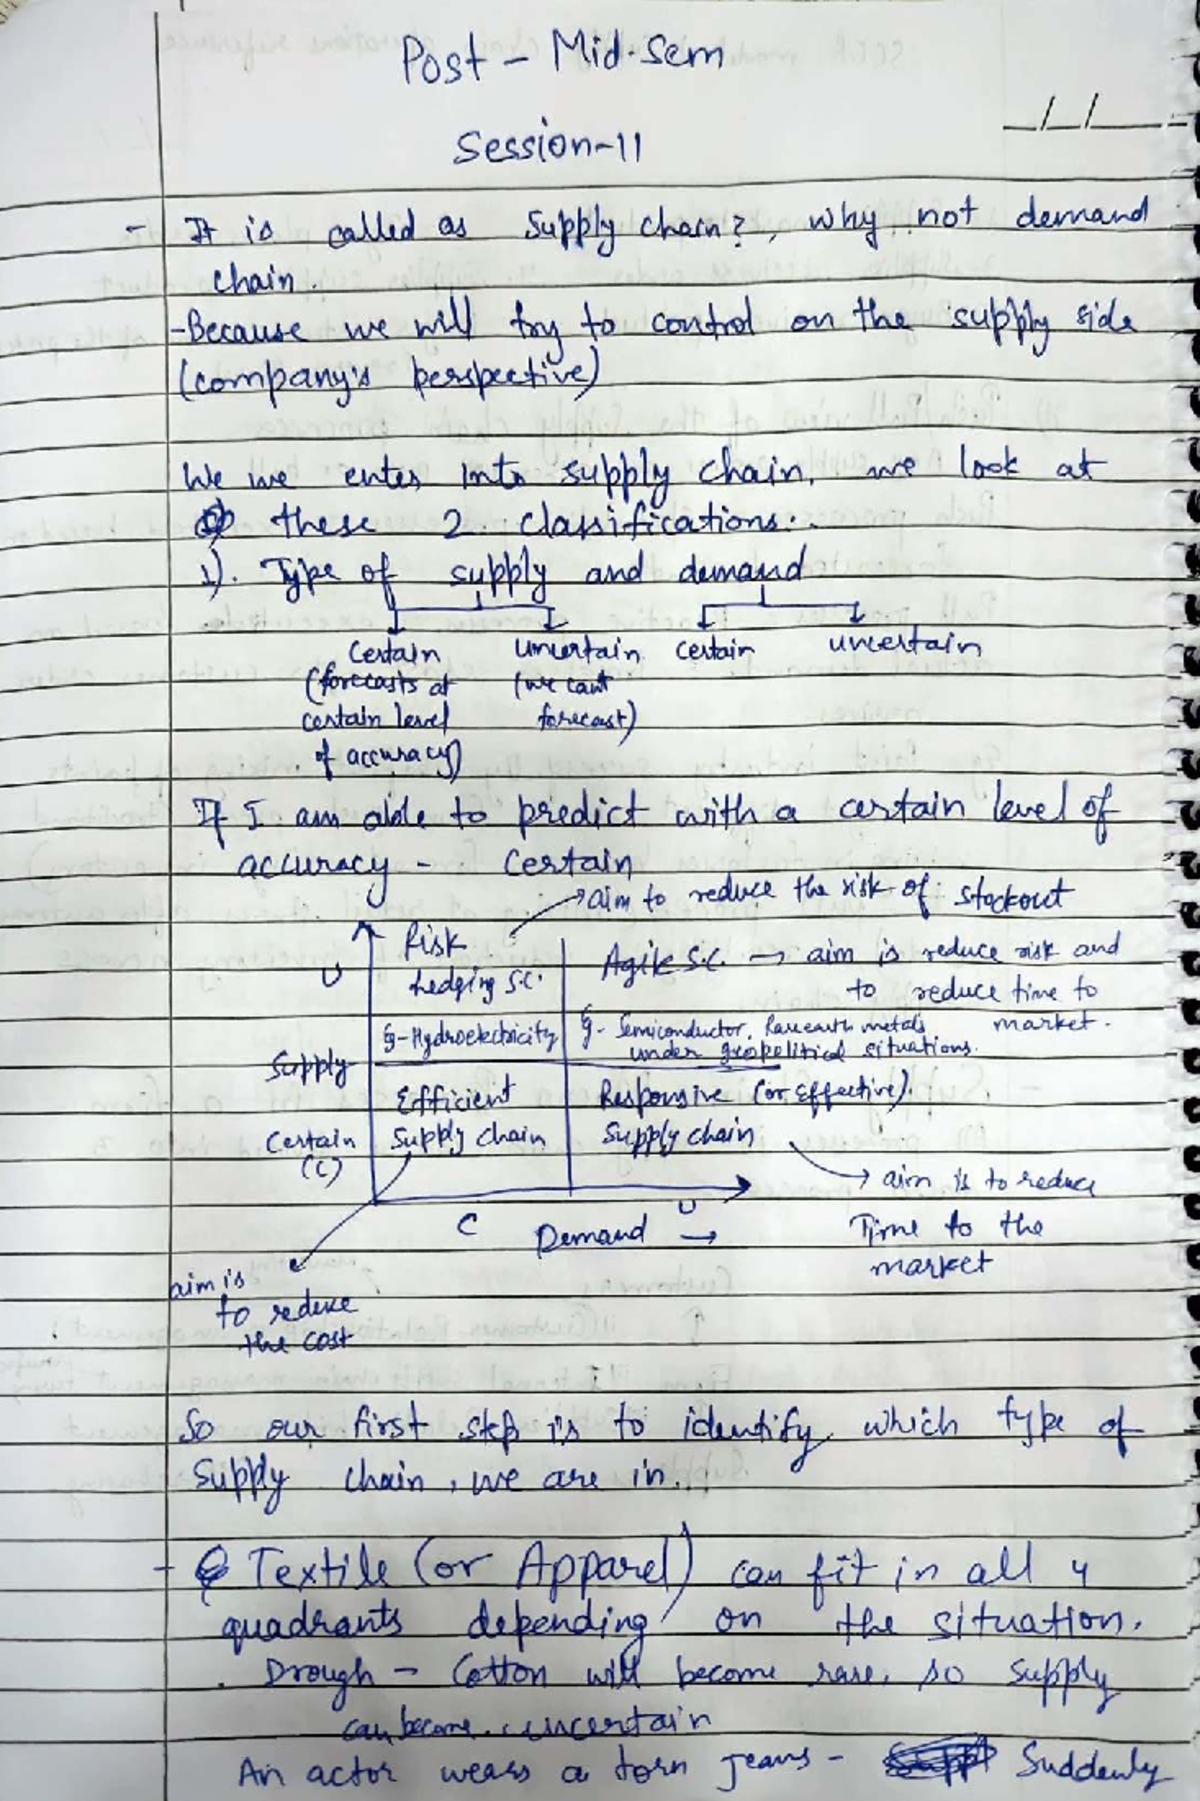 Post - Mid-Sem
_/_/_
Session-11
- It is called as Supply chain?, why not demand
chain.
-Because we will try to control on the supply side
(company's perspective)
We we enter into supply chain, we look at
these 2 classifications:.
1). Type of supply and demand
Certain uncertain certain uncertain
(forecasts at (we cant
certain level forecast)
of accuracy)
If I am able to predict with a certain level of
accuracy - certain
→aim to reduce the risk of stockout
Risk
hedging S.C. Agile S.C. → aim is reduce risk and
U to reduce time to
Eg-Hydroelectricity Eg- Semiconductor, Rare earth metals market.
under geopolitical situations.
Supply
Efficient Responsive (or effective)
Certain supply chain Supply chain
(C)
→ aim is to reduce
C Demand → U Time to the
market
aim is
to reduce
the cost
So our first step is to identify which type of
supply chain, we are in.
- Textile (or Apparel) can fit in all 4
quadrants depending on the situation.
. Drough - Cotton will become rare, so supply
can become uncertain
An actor wears a torn jeans - Suddenly